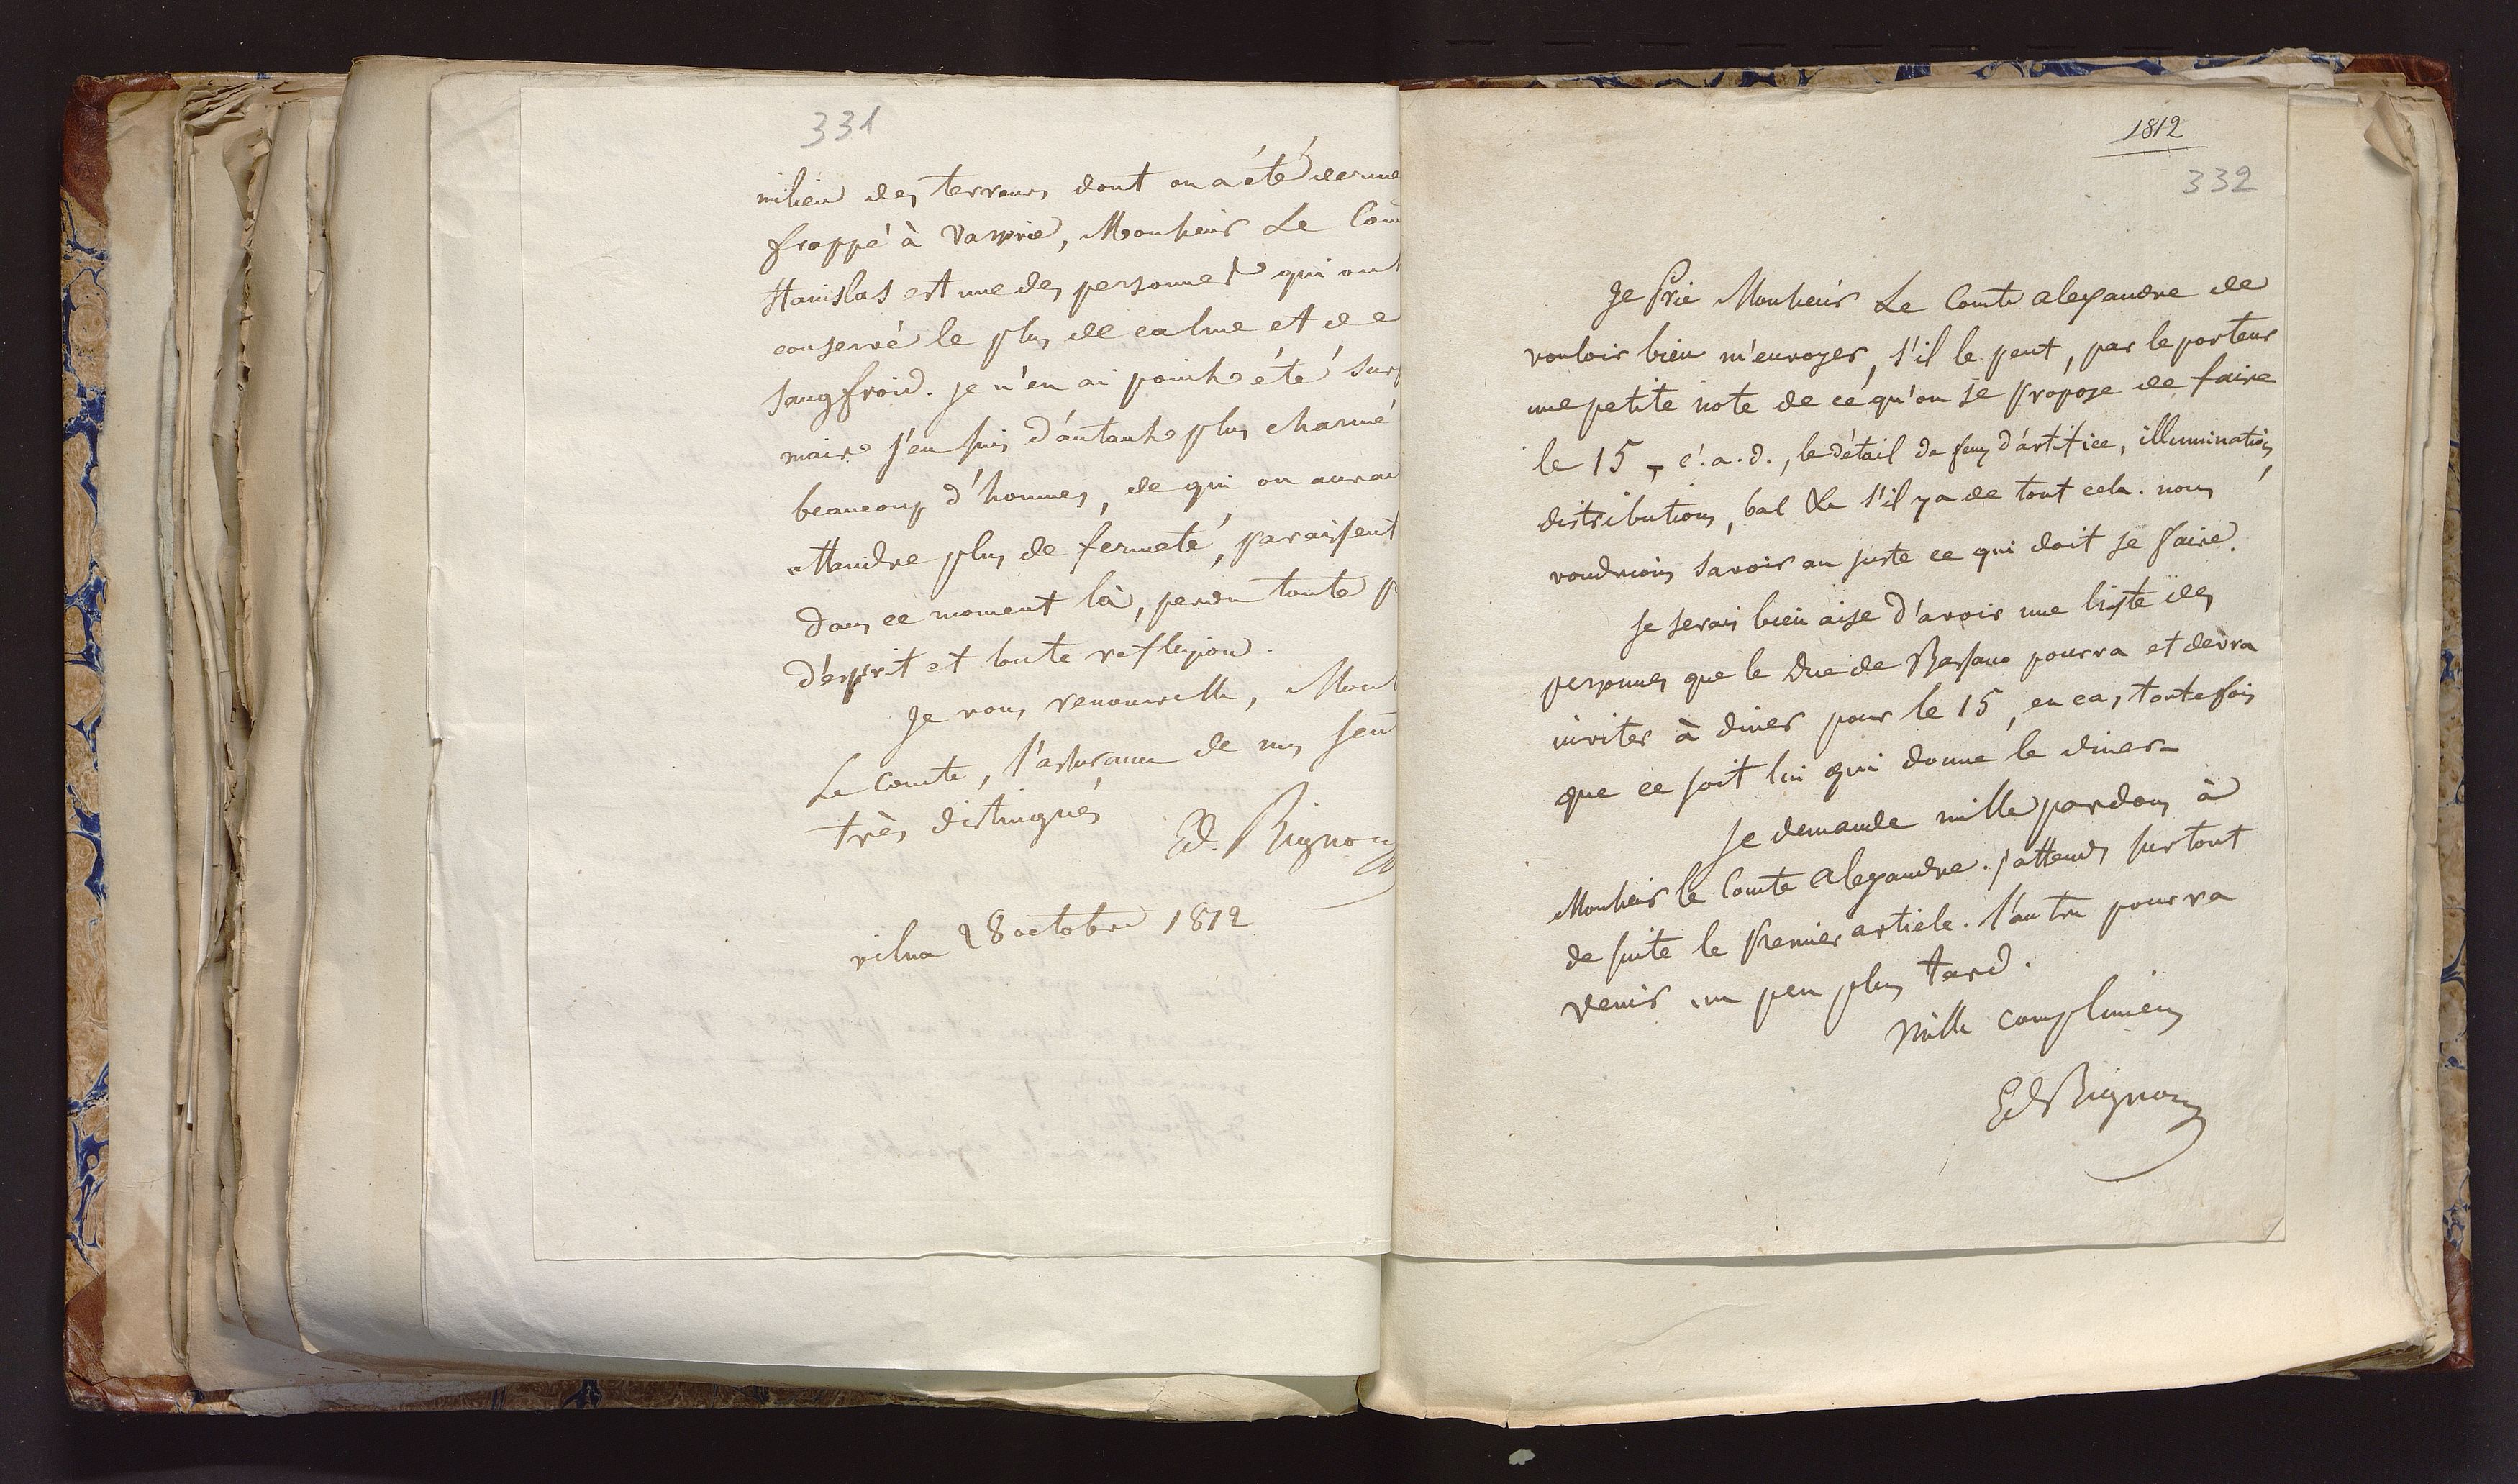 331
milieu des terreurs dont on a été derniè
frappé à Varsovie, Monsieur Le Com
Stanislas est une des personnes qui ont
conservé le plus de calme et de
sangfroid. je n'en ai point été surp
mais j'en suis d'autant plus charmé
beaucoup d'hommes, de qui on aurai
attendre plus de fermeté, paraissent
dans ce moment là, perdu toute p
d'esprit et toute reflexion.
Je vous renouvelle, Mons
Le Comte, l'assurance de mes sen
très distingués
Ed. Bignon
vilna 28 octobre 1812
1812
332
Je prie Monsieur Le Comte alexandre de
vouloir bien m'envoyer, s'il le peut, par le porteur
une petite note de ce qu'on se propose de faire
le 15, c.a.d., le détail de feux d'artifice, illuminations,
distributions, bal &c s'il y a de tout cela. nous
voudrions savoir au juste ce qui doit se faire.
Je serais bien aise d'avoir une liste des
personnes que le Duc de Bassano pourra et devra
inviter à diner pour le 15, en cas toutefois
que ce soit lui qui donne le diner.
Je demande mille pardons à
Monsieur le Comte Alexandre. j'attends surtout
de suite le premier article. l'autre pourra
venir un peu plus tard.
Mille complimens
Ed Bignon